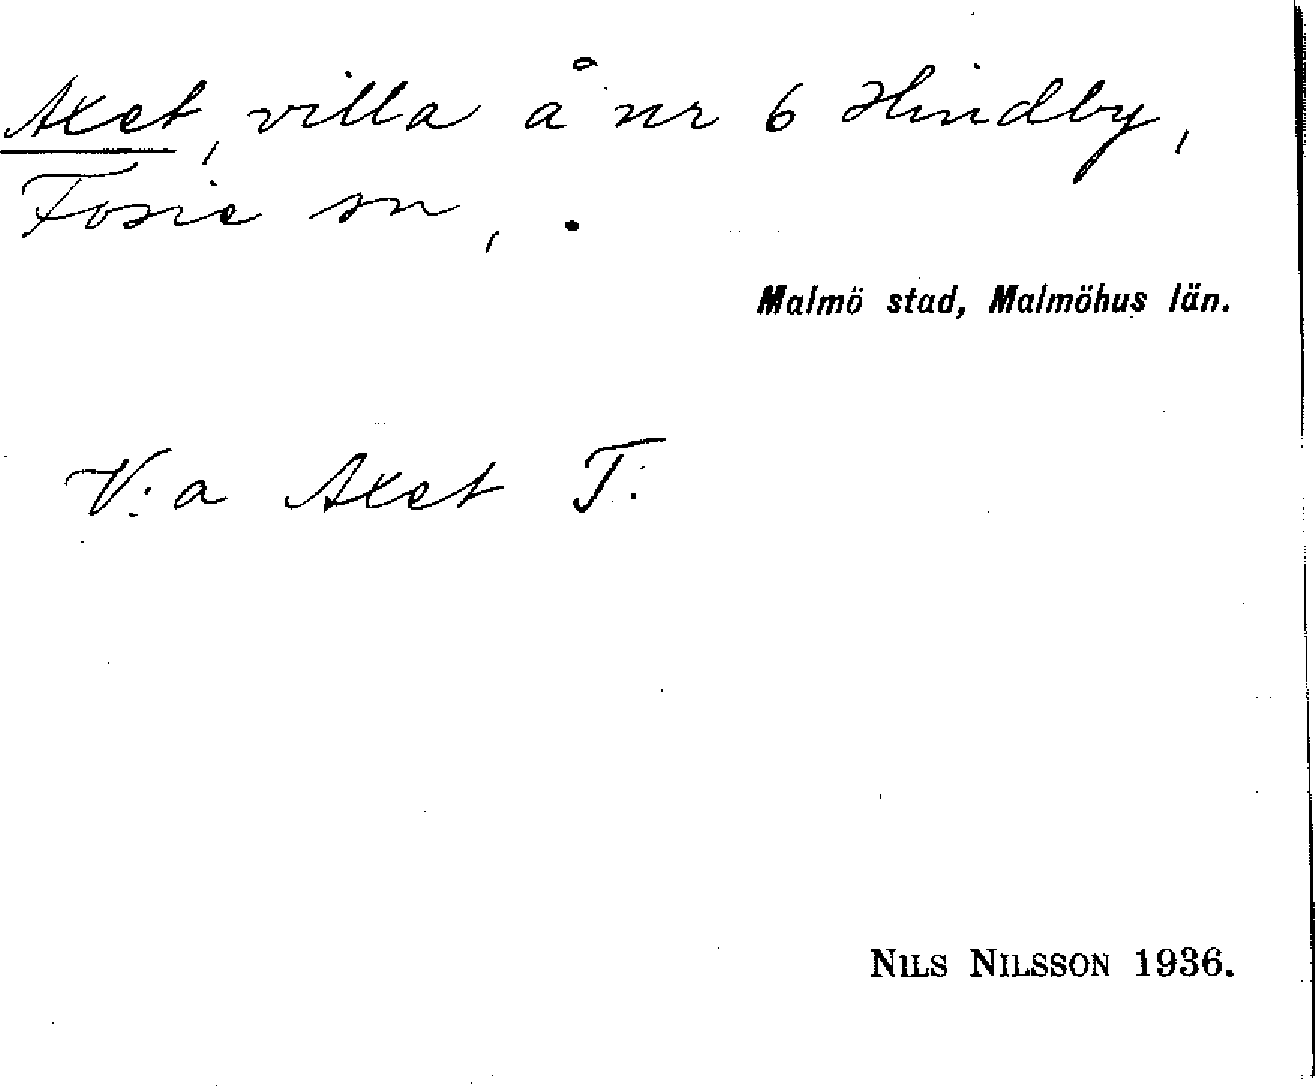 Axet, villa å nr 6 Hindby,
Fosie sn, .
Malmö stad, Malmöhus län.
V:a Axet T:
NILS NILSSON 1936.